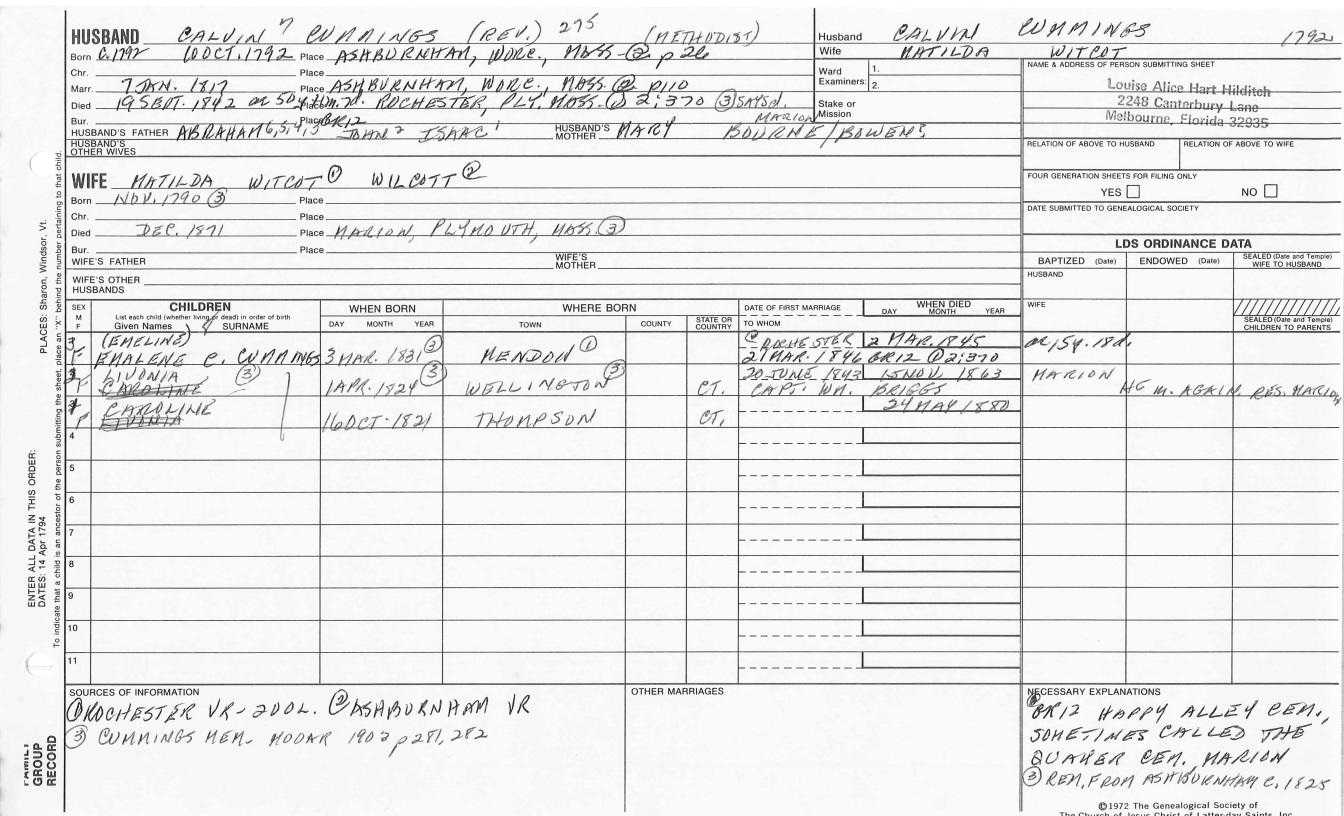 HUSBAND CALVIN 7 CUMMINGS (REV.) 275 (METHODIST)
Born C.1792 10 OCT. 1792 Place ASHBURNHAM, WORC., MASS-② p 26
Chr. Place
Marr. 7 JAN. 1817 Place ASHBURNHAM, WORC., MASS ② p110
Died 19 SEPT. 1842 ROCHESTER, PLY. MASS-① 2:370 ③ SAYS d. MARION
Bur. Place GR12
HUSBAND'S FATHER ABRAHAM 6,5,4,3 JOHN 2 ISAAC 1 HUSBAND'S MOTHER MARY BOURNE/BOWEN?
HUSBAND'S OTHER WIVES
Husband CALVIN CUMMINGS 1792
Wife MATILDA WITCOT
Ward 1.
Examiners: 2.
Stake or Mission
NAME & ADDRESS OF PERSON SUBMITTING SHEET
Louise Alice Hart Hilditch
2248 Canterbury Lane
Melbourne, Florida 32935
RELATION OF ABOVE TO HUSBAND RELATION OF ABOVE TO WIFE
FOUR GENERATION SHEETS FOR FILING ONLY
YES NO
DATE SUBMITTED TO GENEALOGICAL SOCIETY
WIFE MATILDA WITCOT ① WILCOTT ②
Born NOV. 1790 ③ Place
Chr. Place
Died DEC. 1871 Place MARION, PLYMOUTH, MASS ③
Bur. Place
WIFE'S FATHER WIFE'S MOTHER
WIFE'S OTHER HUSBANDS
LDS ORDINANCE DATA
BAPTIZED (Date) ENDOWED (Date) SEALED (Date and Temple) WIFE TO HUSBAND
HUSBAND
WIFE
SEALED (Date and Temple) CHILDREN TO PARENTS
SEX M F
CHILDREN
List each child (whether living or dead) in order of birth
Given Names SURNAME
WHEN BORN
DAY MONTH YEAR
WHERE BORN
TOWN COUNTY STATE OR COUNTRY
DATE OF FIRST MARRIAGE
TO WHOM
WHEN DIED
DAY MONTH YEAR
(EMELINE) ROCHESTER 2 MAR. 1845
F EMALENE C. CUMMINGS 3 MAR. 1831 ② MENDON ① 21 MAR. 1846 GR12 ① 2:370
LIVONIA ③ 20 JUNE 1843 15 NOV. 1863 MARION
F CAROLINE 1 APR. 1824 ③ WELLINGTON ③ CT. CAPT. WM. BRIGGS HE m. AGAIN. RES. MARION
CAROLINE 24 MAY 1880
F LIVONIA 16 OCT. 1821 THOMPSON CT.
4
5
6
7
8
9
10
11
SOURCES OF INFORMATION
① ROCHESTER VR-2 VOL. ② ASHBURNHAM VR
③ CUMMINGS MEM. MOOAR 1903 p 281, 282
OTHER MARRIAGES
NECESSARY EXPLANATIONS
GR12 HAPPY ALLEY CEM.,
SOMETIMES CALLED THE
QUAKER CEM. MARION
③ REM. FROM ASHBURNHAM C. 1825
©1972 The Genealogical Society of
The Church of Jesus Christ of Latter-day Saints, Inc.
PLACES: Sharon, Windsor, Vt.
ENTER ALL DATA IN THIS ORDER:
DATES: 14 Apr 1794
To indicate that a child is an ancestor of the person submitting the sheet, place an "X" behind the number pertaining to that child.
FAMILY GROUP RECORD